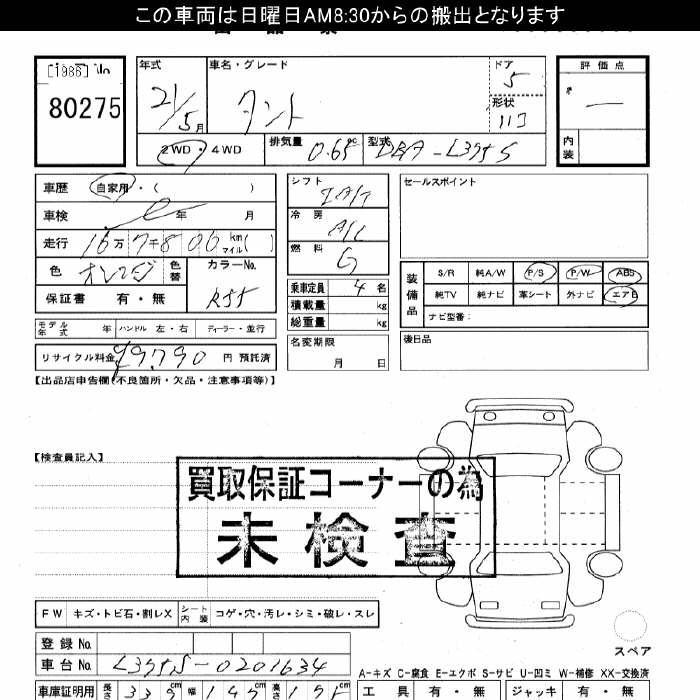 この車両は日曜日AM8:30からの搬出となります
[1986] No
80275
年式 車名・グレード ドア 評価点
21/5月 タント 5
形状
2WD・4WD 排気量 0.65 cc 型式 DBA-L375S
内装
車歴 自家用・( )
シフト IA/T
セールスポイント
車検 年 月
冷房 A/C
走行 16万7千806 km マイル( )
燃料 G
色 オレンジ 色替 カラーNo. R55
乗車定員 4名
装備品 S/R 純A/W P/S P/W ABS
純TV 純ナビ 革シート 外ナビ エアB
ナビ型番:
保証書 有・無
積載量 kg
総重量 kg
モデル年式 年 ハンドル 左・右 ディーラー・並行
名変期限 月 日
後日品
リサイクル料金 ¥9,790 円 預託済
【出品店申告欄(不良箇所・欠品・注意事項等)】
【検査員記入】
買取保証コーナーの為
未検査
FW キズ・トビ石・割レX シート内装 コゲ・穴・汚レ・シミ・破レ・スレ
登録No.
スペア
車台No. L375S-0201634
A-キズ C-腐食 E-エクボ S-サビ U-凹ミ W-補修 XX-交換済
車庫証明用 長さ 339cm 幅 147cm 高さ 175cm 工具 有・無 ジャッキ 有・無